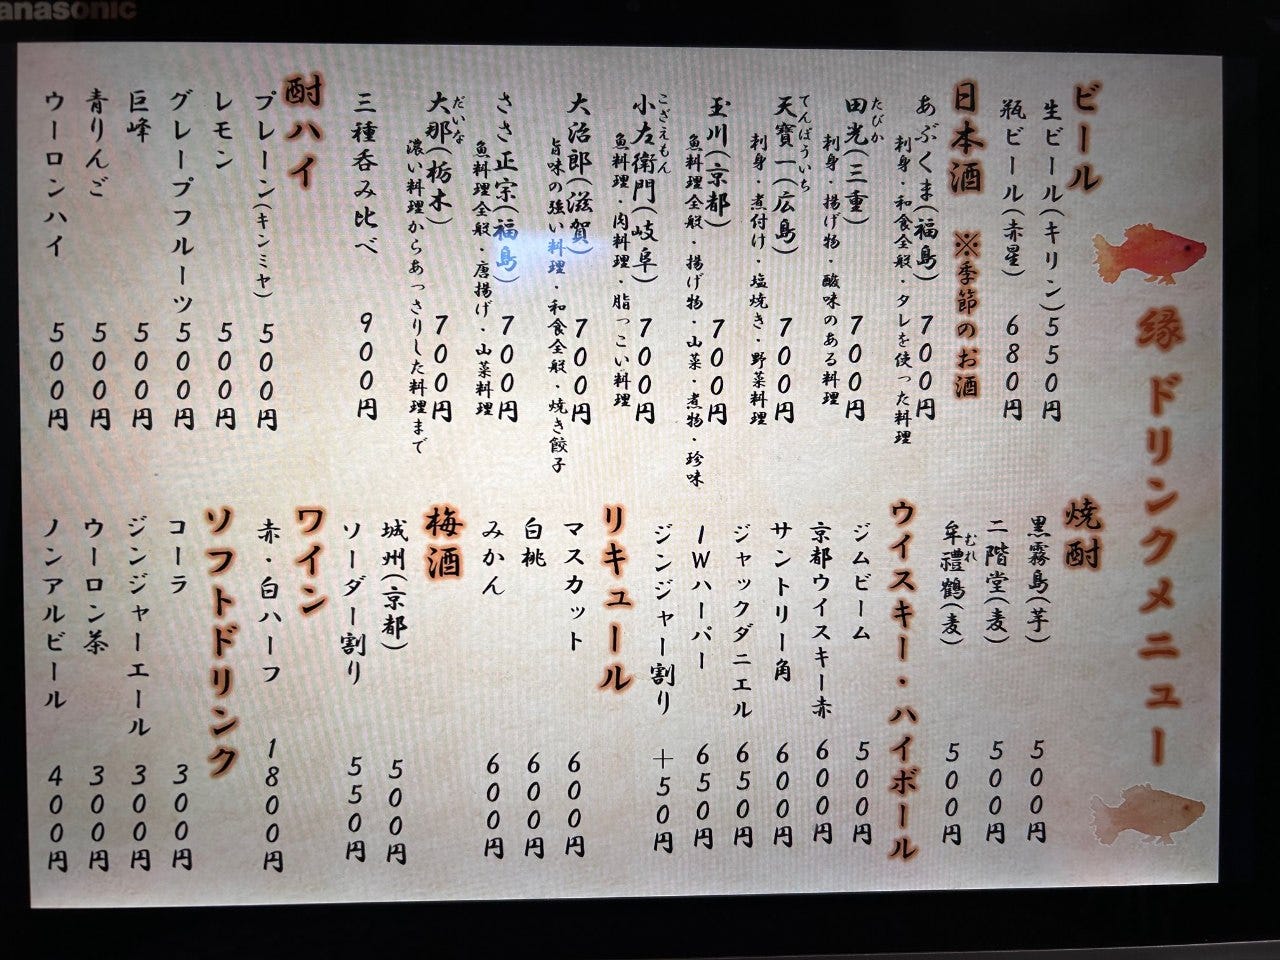 anasonic
縁 ドリンクメニュー
ビール
生ビール(キリン) 550円
瓶ビール(赤星) 680円
日本酒 ※季節のお酒
あぶくま(福島) 700円
刺身・和食全般・タレを使った料理
田光(三重) 700円
たびか
刺身・揚げ物・酸味のある料理
天寶一(広島) 700円
てんぽういち
刺身・煮付け・塩焼き・野菜料理
玉川(京都) 700円
魚料理全般・揚げ物・山菜・煮物・珍味
小左衛門(岐阜) 700円
こざえもん
魚料理・肉料理・脂っこい料理
大治郎(滋賀) 700円
旨味の強い料理・和食全般・焼き餃子
ささ正宗(福島) 700円
魚料理全般・唐揚げ・山菜料理
大那(栃木) 700円
だいな
濃い料理からあっさりした料理まで
三種呑み比べ 900円
酎ハイ
プレーン(キンミヤ) 500円
レモン 500円
グレープフルーツ 500円
巨峰 500円
青りんご 500円
ウーロンハイ 500円
焼酎
黒霧島(芋) 500円
二階堂(麦) 500円
牟禮鶴(麦) 500円
むれ
ウイスキー・ハイボール
ジムビーム 500円
京都ウイスキー赤 600円
サントリー角 600円
ジャックダニエル 650円
IWハーパー 650円
ジンジャー割り +50円
リキュール
マスカット 600円
白桃 600円
みかん 600円
梅酒
城州(京都) 500円
ソーダー割り 550円
ワイン
赤・白ハーフ 1800円
ソフトドリンク
コーラ 300円
ジンジャーエール 300円
ウーロン茶 300円
ノンアルビール 400円